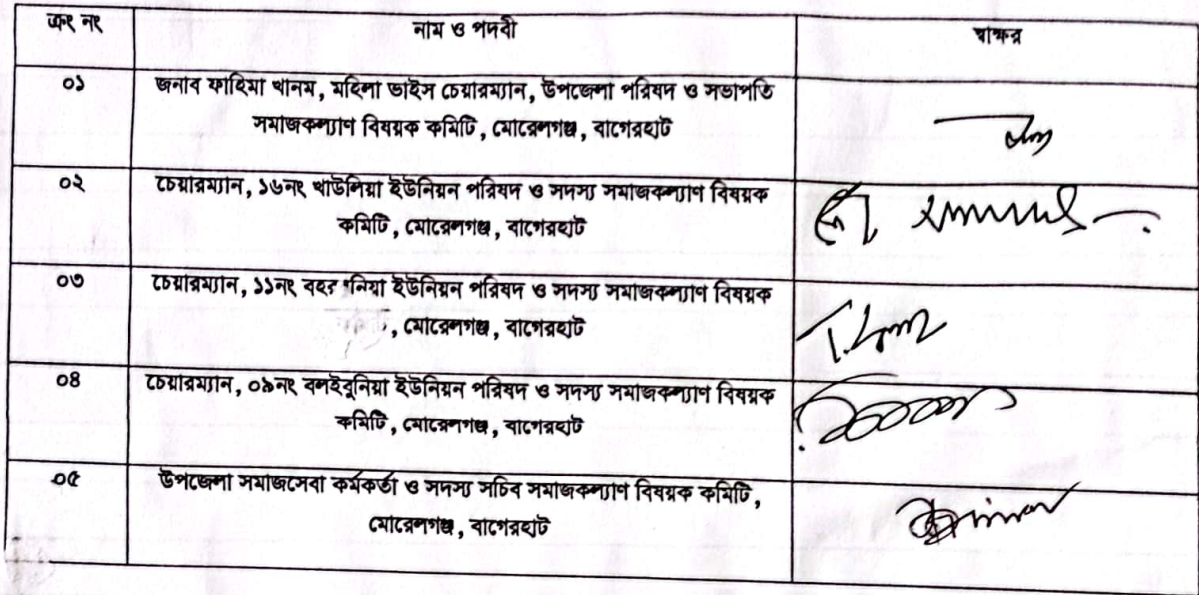 ক্রং নং নাম ও পদবী স্বাক্ষর
০১ জনাব ফাহিমা খানম, মহিলা ভাইস চেয়ারম্যান, উপজেলা পরিষদ ও সভাপতি
সমাজকল্যাণ বিষয়ক কমিটি, মোরেলগঞ্জ, বাগেরহাট
০২ চেয়ারম্যান, ১৬নং খাউলিয়া ইউনিয়ন পরিষদ ও সদস্য সমাজকল্যাণ বিষয়ক
কমিটি, মোরেলগঞ্জ, বাগেরহাট
০৩ চেয়ারম্যান, ১১নং ইউনিয়ন পরিষদ ও সদস্য সমাজকল্যাণ বিষয়ক
, মোরেলগঞ্জ, বাগেরহাট
০৪ চেয়ারম্যান, ০৯নং বলইবুনিয়া ইউনিয়ন পরিষদ ও সদস্য সমাজকল্যাণ বিষয়ক
কমিটি, মোরেলগঞ্জ, বাগেরহাট
০৫ উপজেলা সমাজসেবা কর্মকর্তা ও সদস্য সচিব সমাজকল্যাণ বিষয়ক কমিটি,
মোরেলগঞ্জ, বাগেরহাট